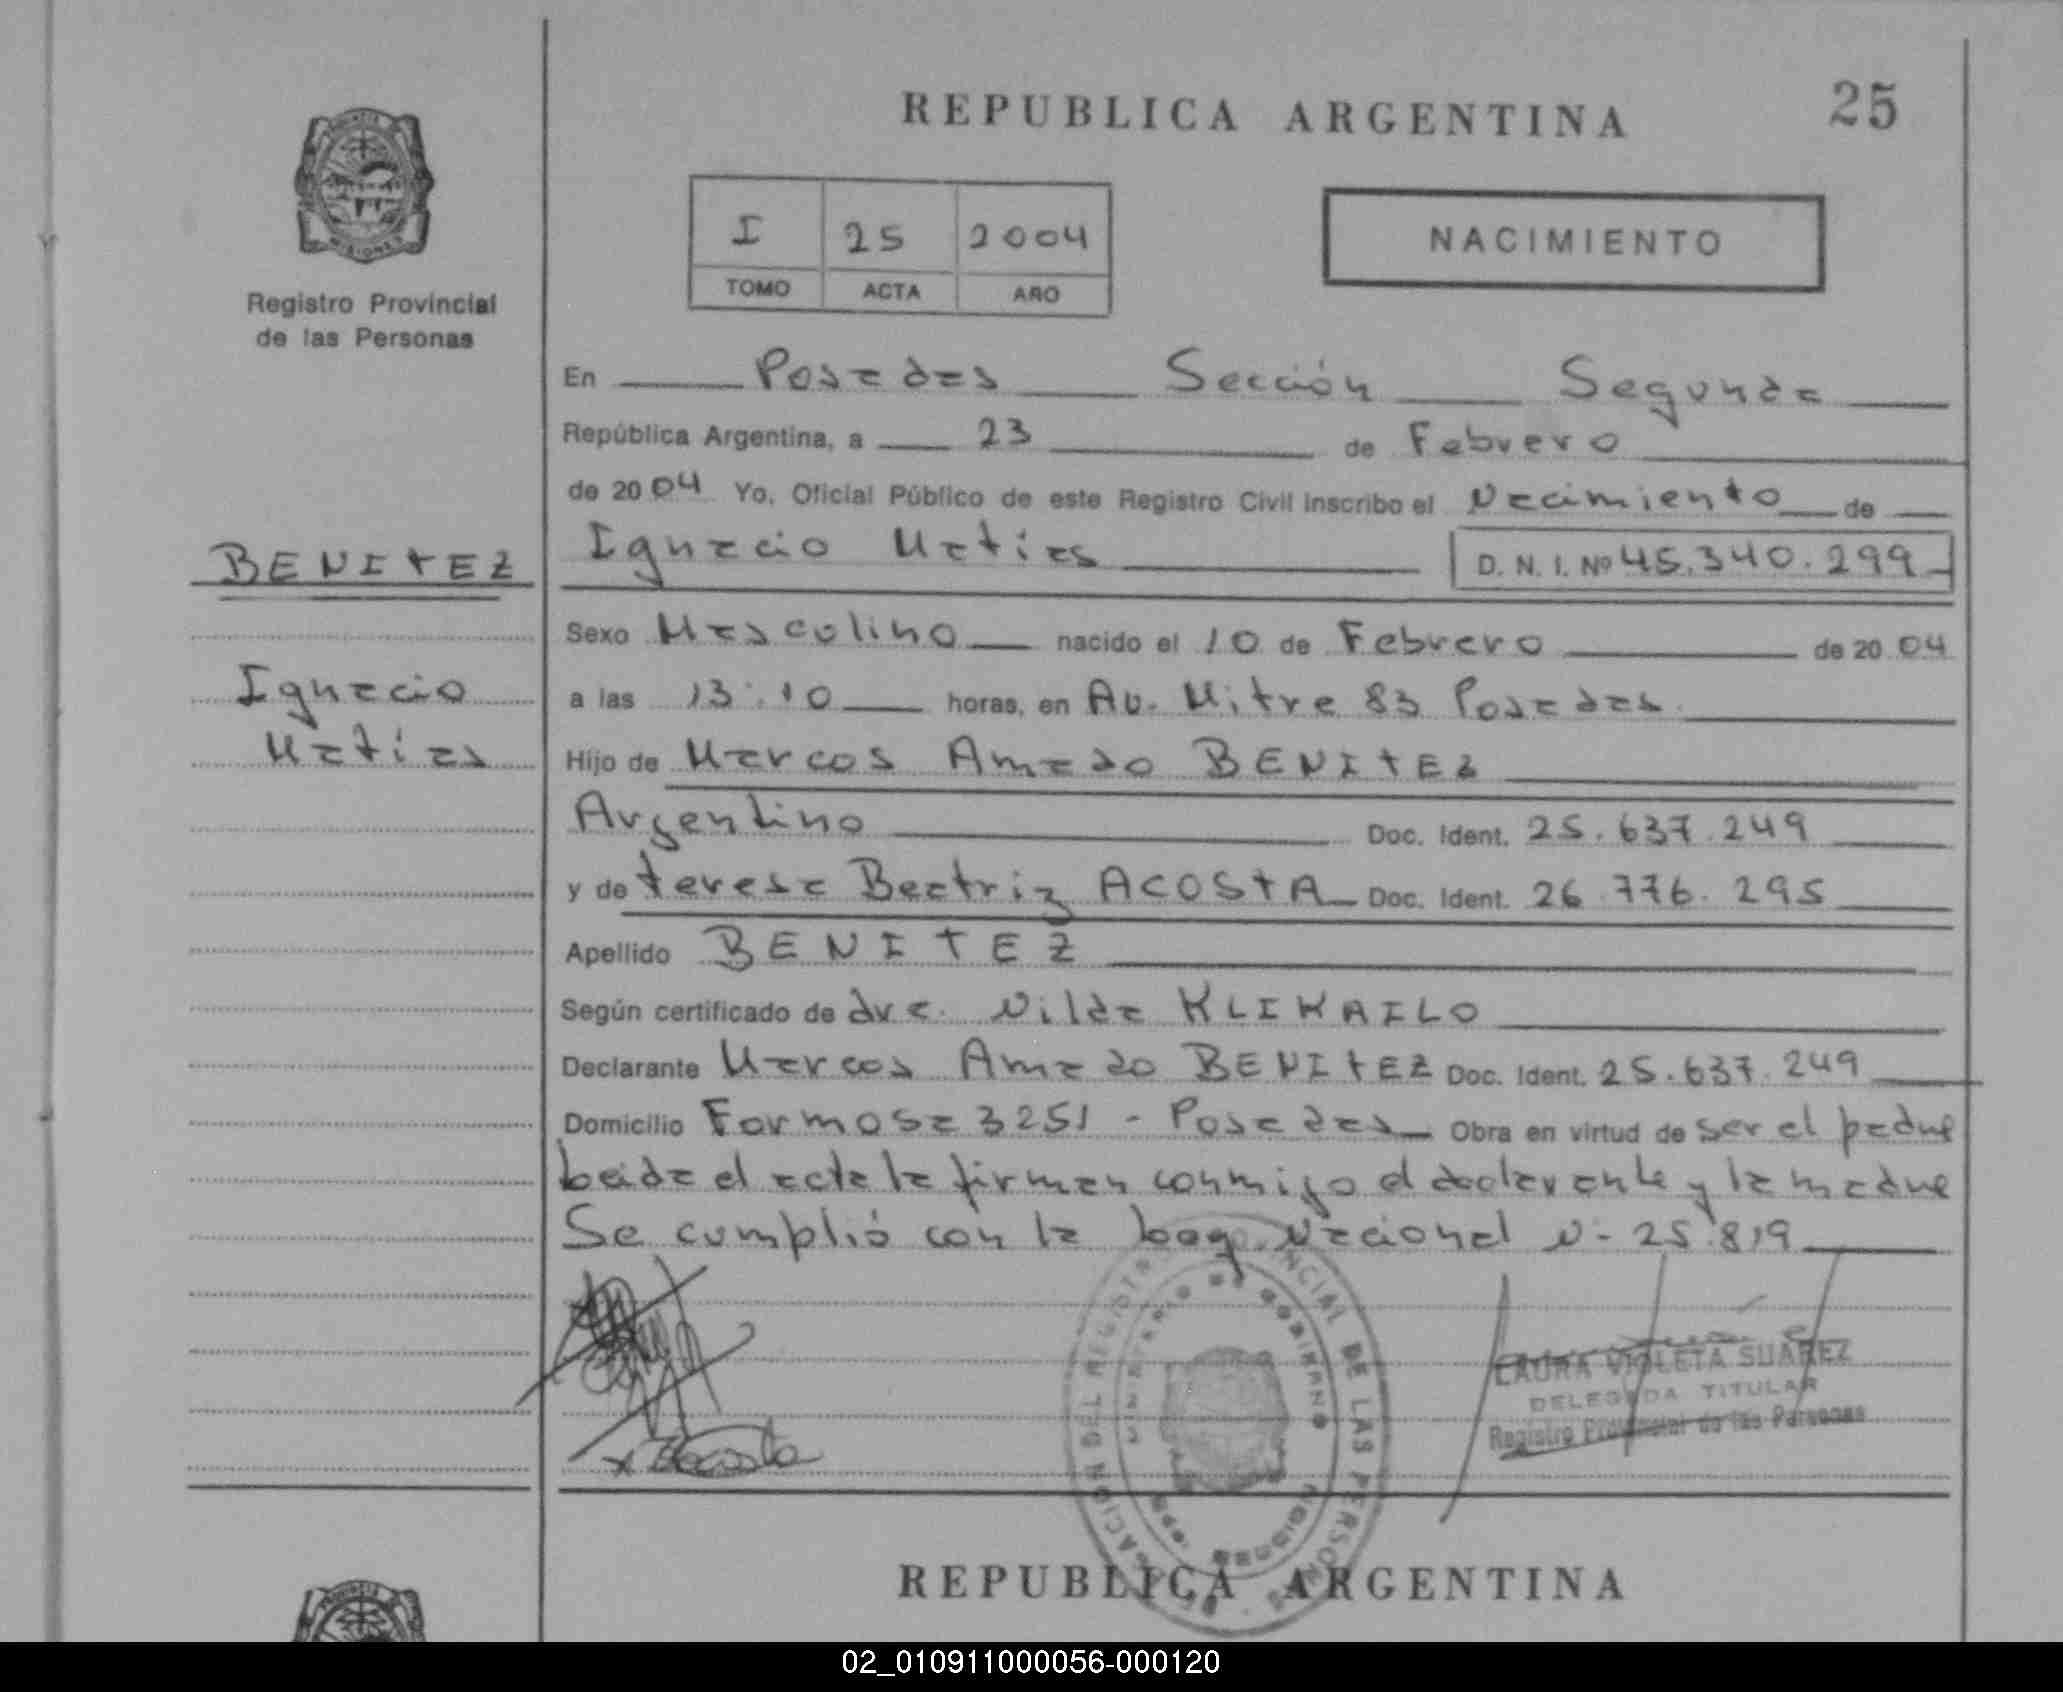 REPUBLICA ARGENTINA
25
I 25 2004
TOMO ACTA AÑO
NACIMIENTO
MISIONES
Registro Provincial
de las Personas
En Posadas Sección Segunda
República Argentina, a 23 de Febrero
de 2004 Yo, Oficial Público de este Registro Civil Inscribo el Nacimiento de
BENITEZ
Ignacio Matias D. N. I. Nº 45.340.299
Sexo Masculino nacido el 10 de Febrero de 2004
Ignacio
a las 13:10 horas, en Av. Mitre 83 Posadas
Matias
Hijo de Marcos Amado BENITEZ
Argentino Doc. Ident. 25.637.249
y de Teresa Beatriz ACOSTA Doc. Ident. 26.776.295
Apellido BENITEZ
Según certificado de dra. Nilda KLIKAILO
Declarante Marcos Amado BENITEZ Doc. Ident. 25.637.249
Domicilio Formosa 3251 - Posadas Obra en virtud de ser el padre
Leida el acta la firman conmigo el declarante y la madre
Se cumplió con la Ley Nacional N- 25.819
LAURA VIOLETA SUAREZ
DELEGADA TITULAR
Registro Provincial de las Personas
REPUBLICA ARGENTINA
02_010911000056-000120